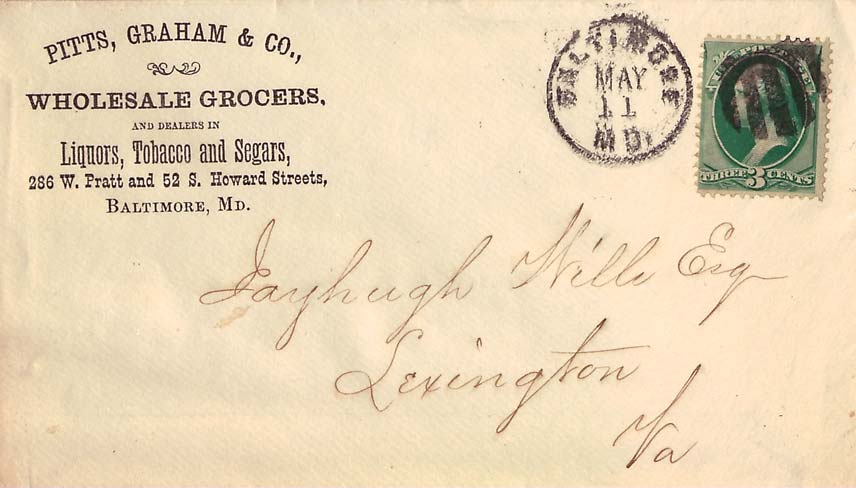 PITTS, GRAHAM & CO.,
WHOLESALE GROCERS,
AND DEALERS IN
Liquors, Tobacco and Segars,
286 W. Pratt and 52 S. Howard Streets,
BALTIMORE, MD.
BALTIMORE
MAY
11
MD.
THREE 3 CENTS
Jayhugh Wills Esq
Lexington
Va